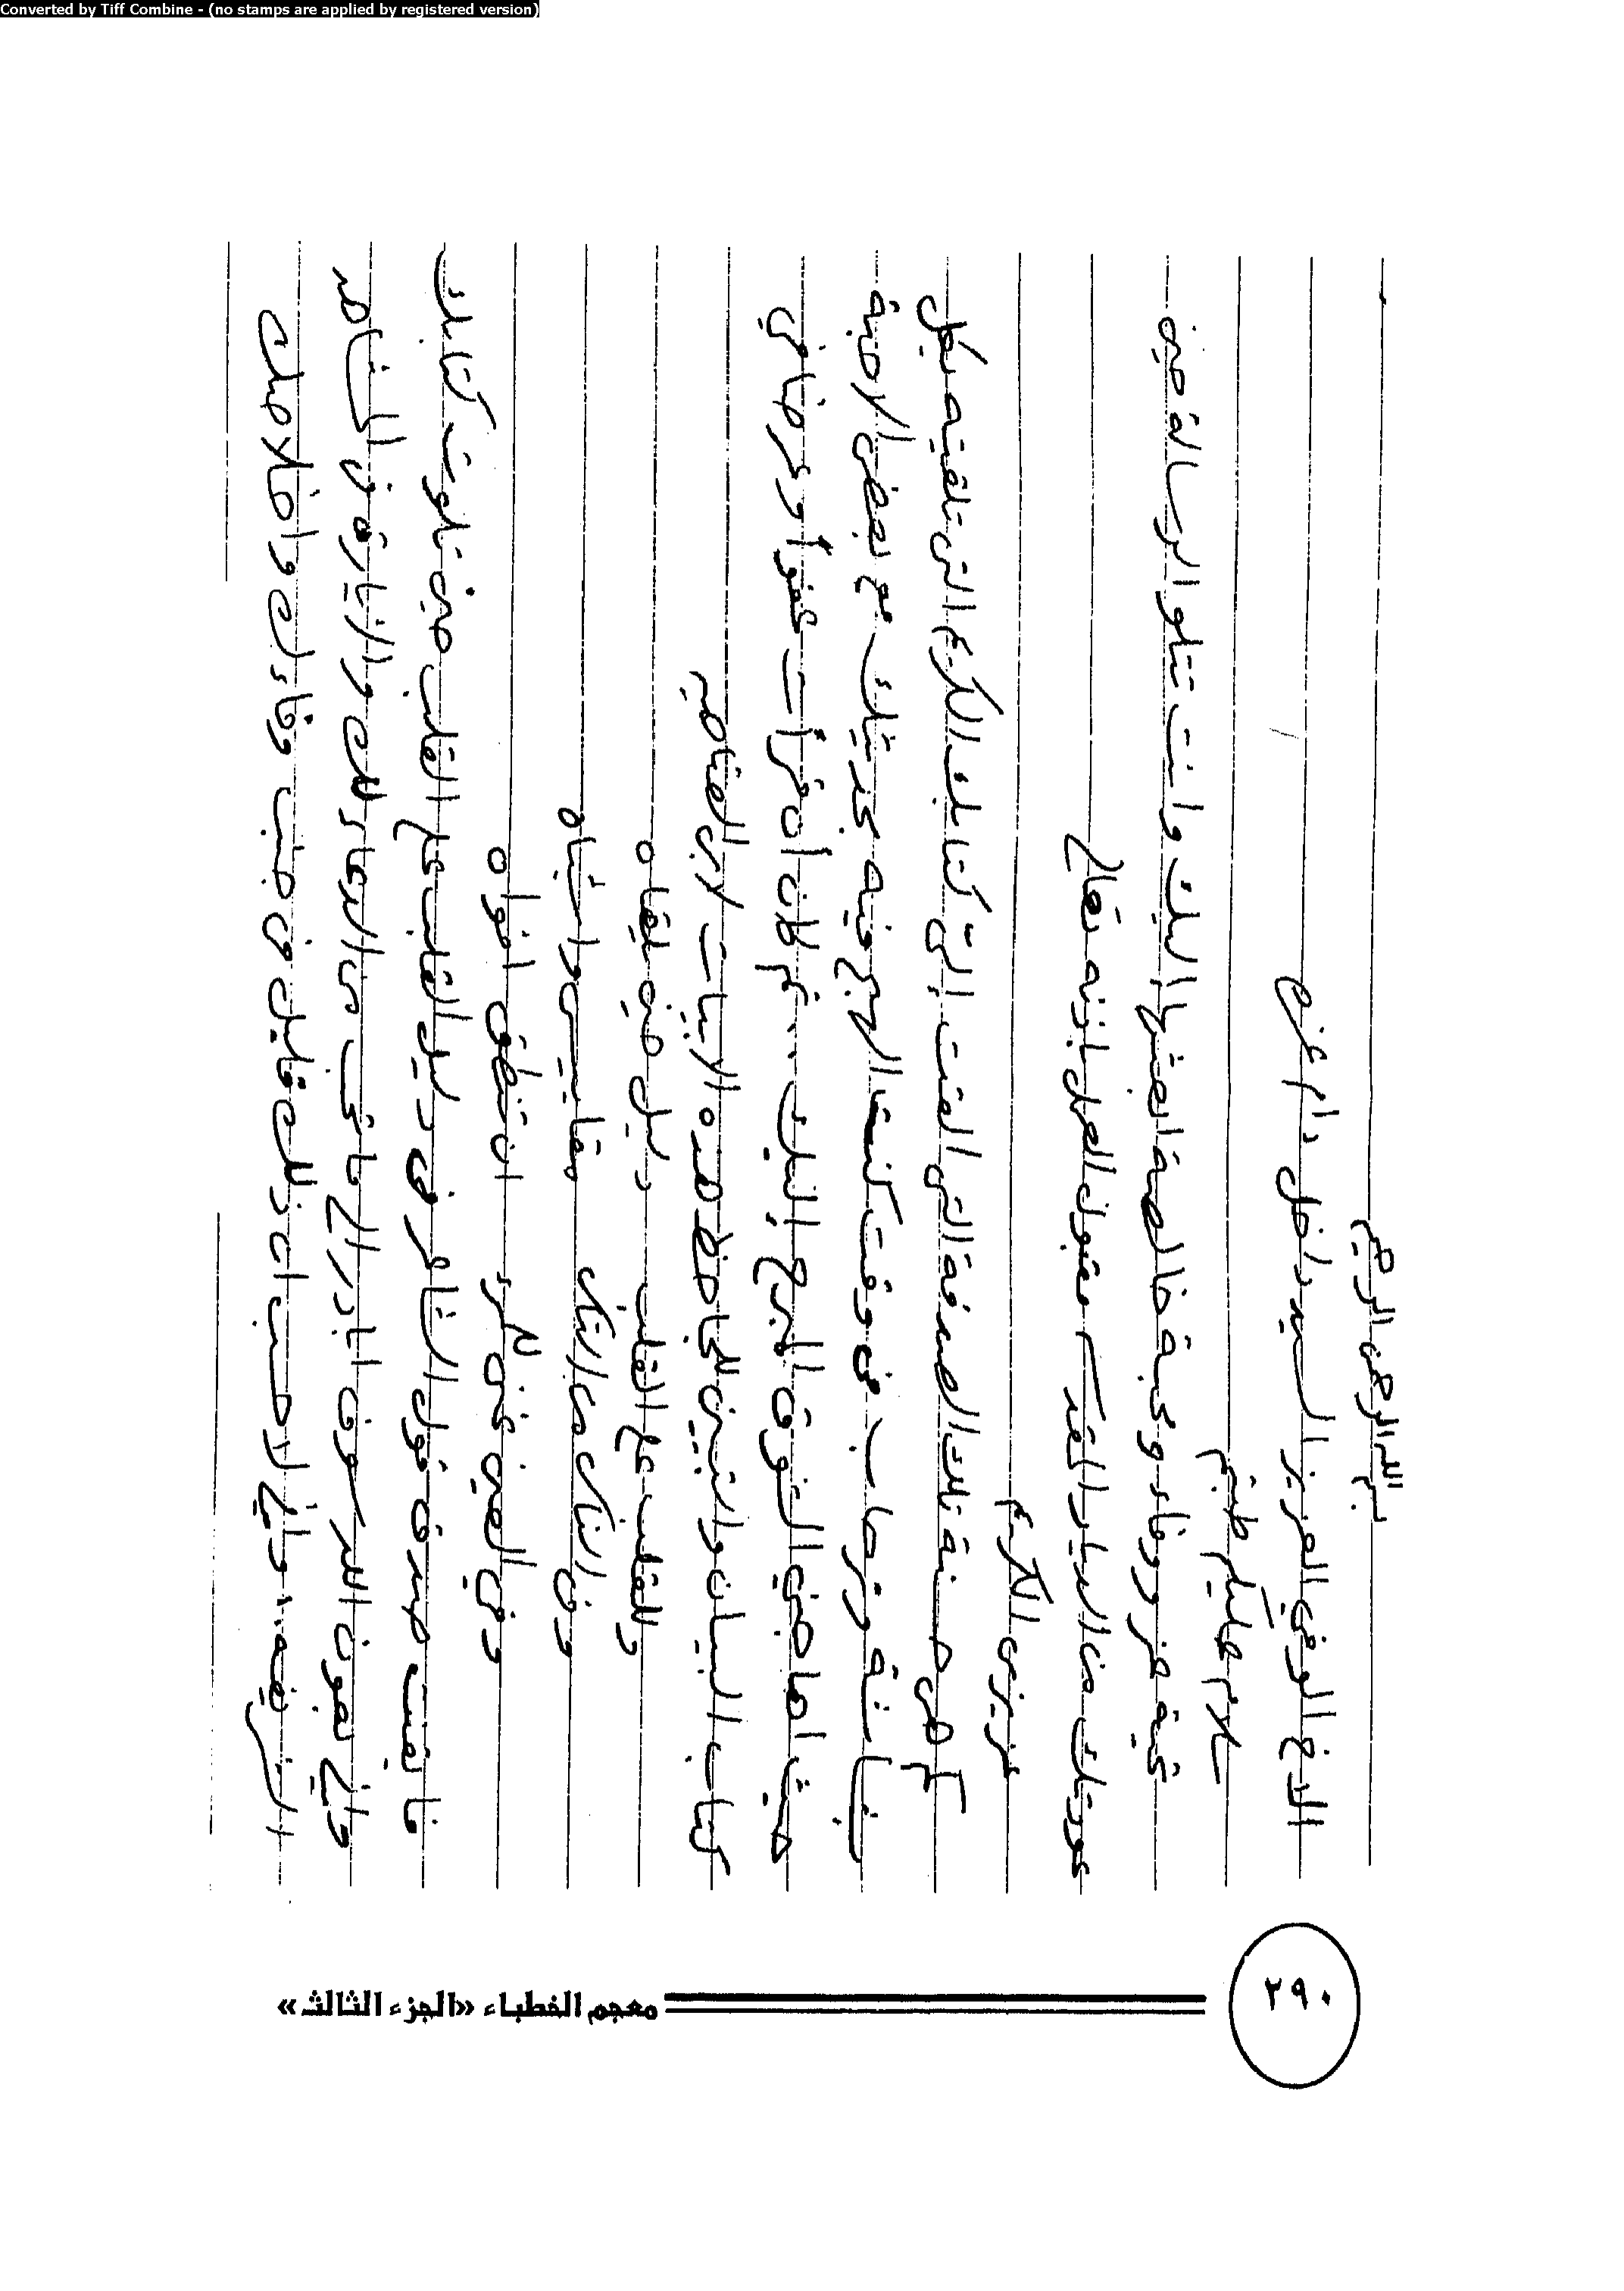 Converted by Tiff Combine - (no stamps are applied by registered version)
بسم الله الرحمن الرحيم
الاخ الوفي العزيز السيد داخل دام عزه
سلام عليكم طبتم
تحية عز ووفاء ومحبة خالصة ابعثها إليك وانت تتلو الرسالة حين
عودتك من الديار المقدسة مقبول العمل بإذنه تعالى
عزيزي الكريم
كم هي حسنة تلك الصدفة التي القت إليّ كتابك الكريم الذي تلقيته بكل
بشاشة وترحاب في وقت كنت اليوم فيه عزيتك مع بعض الاحبة
حيث امضني الشوق المبرح إليك .. ثم كان أن قرأت عفواً وعرضاً في
كتاب البيان والتبيين للجاحظ هذه الابيات لابي العتاهية
وللقلب على القلب دليل حين يلقاه
وفي الناس من الناس مقاييس واشباه
وفي العين غنى للمرء ان تنطق افواه
فأيقنت صدق قول الشاعر في دليل القلب على القلب حين تلوت كتابك
واني بعون الله سوف ابادر الى ما تحب من الدعاء لكم والزيارة في المشاهد
الشريفة... واني لاحسب ان ذلكم قليل في جنب وفائكم واخلاصكم
معجم الخطباء «الجزء الثالث»
٢٩٠